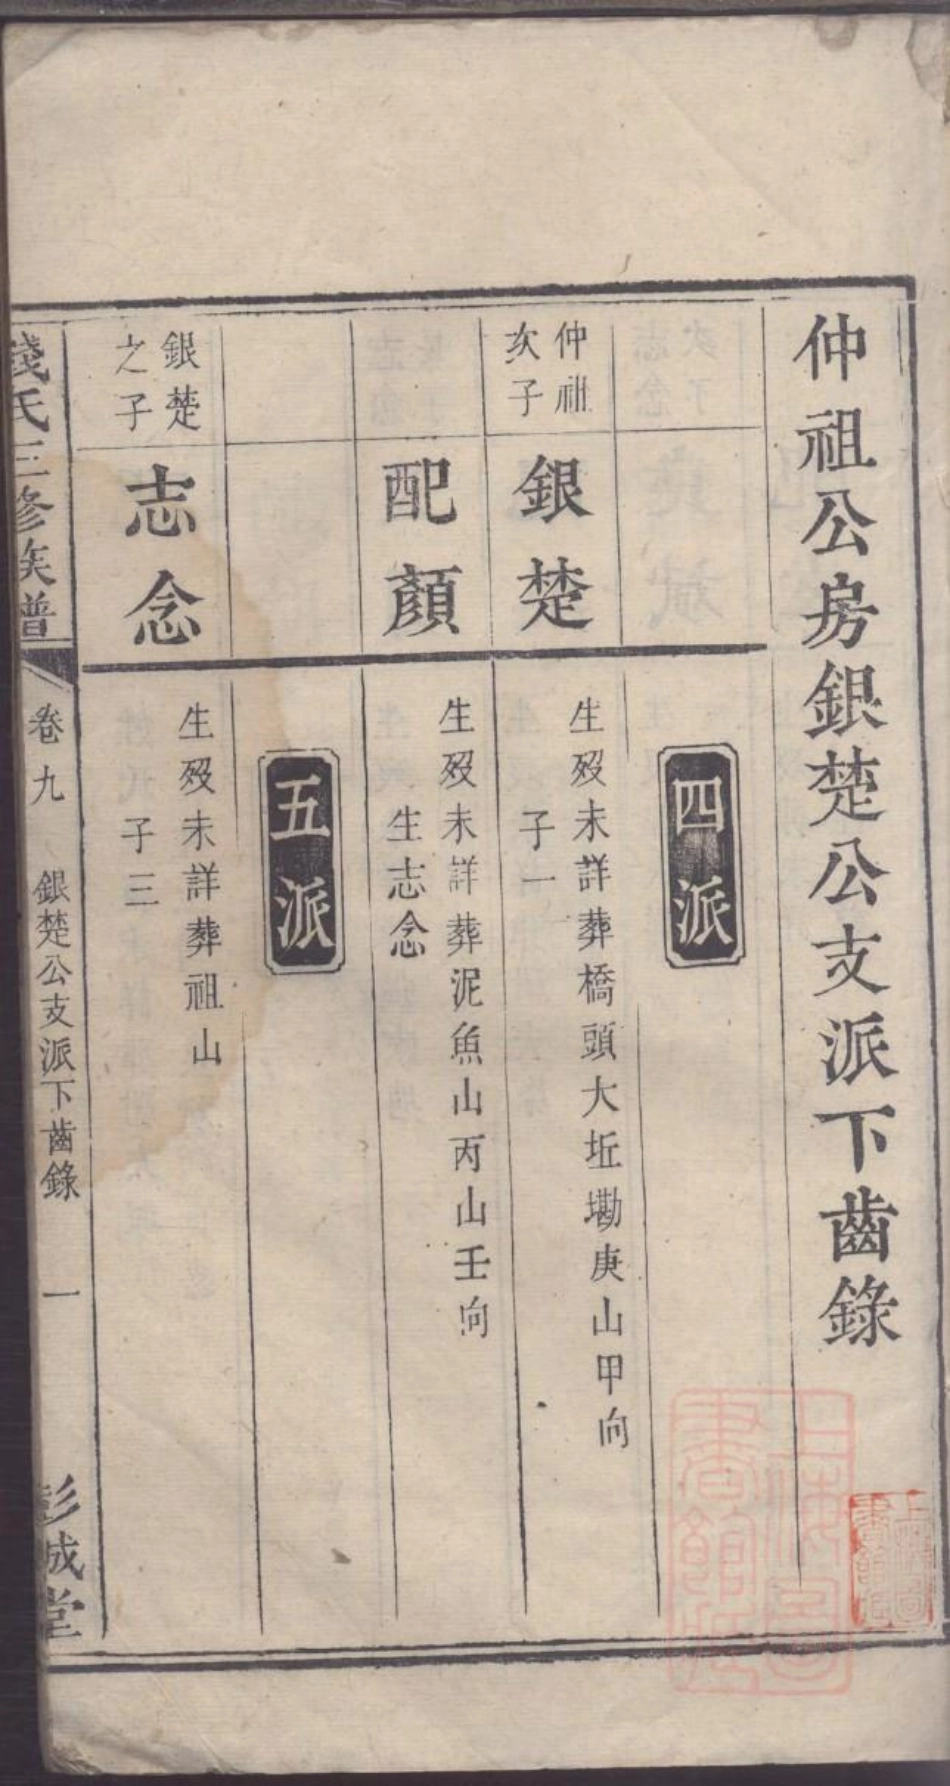 仲祖公房銀楚公支派下齒錄
四派
仲祖
次子
銀楚
生歿未詳葬橋頭大坵墈庚山甲向
子一
配顏
生歿未詳葬泥魚山丙山壬向
生志念
五派
銀楚
之子
志念
生歿未詳葬祖山
子三
錢氏三修族譜
卷九
銀楚公支派下齒錄
一
彭城堂